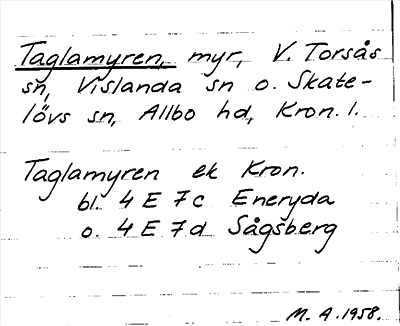 Taglamyren, myr, V. Torsås
sn, Vislanda sn o. Skate-
lövs sn, Allbo hd, Kron. l.
Taglamyren ek Kron.
bl. 4 E 7c Eneryda
o. 4 E 7d Sågsberg
M. A. 1958.